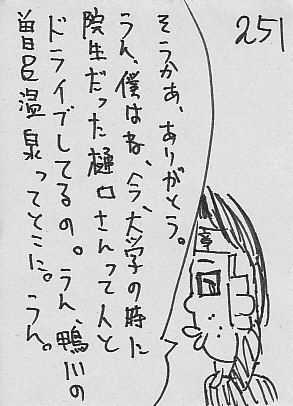 251
そうかあ、ありがとう。
うん、僕はね、今、大学の時に
院生だった樋口さんって人と
ドライブしてるの。うん、鴨川の
曽呂温泉ってとこに。うん。
章